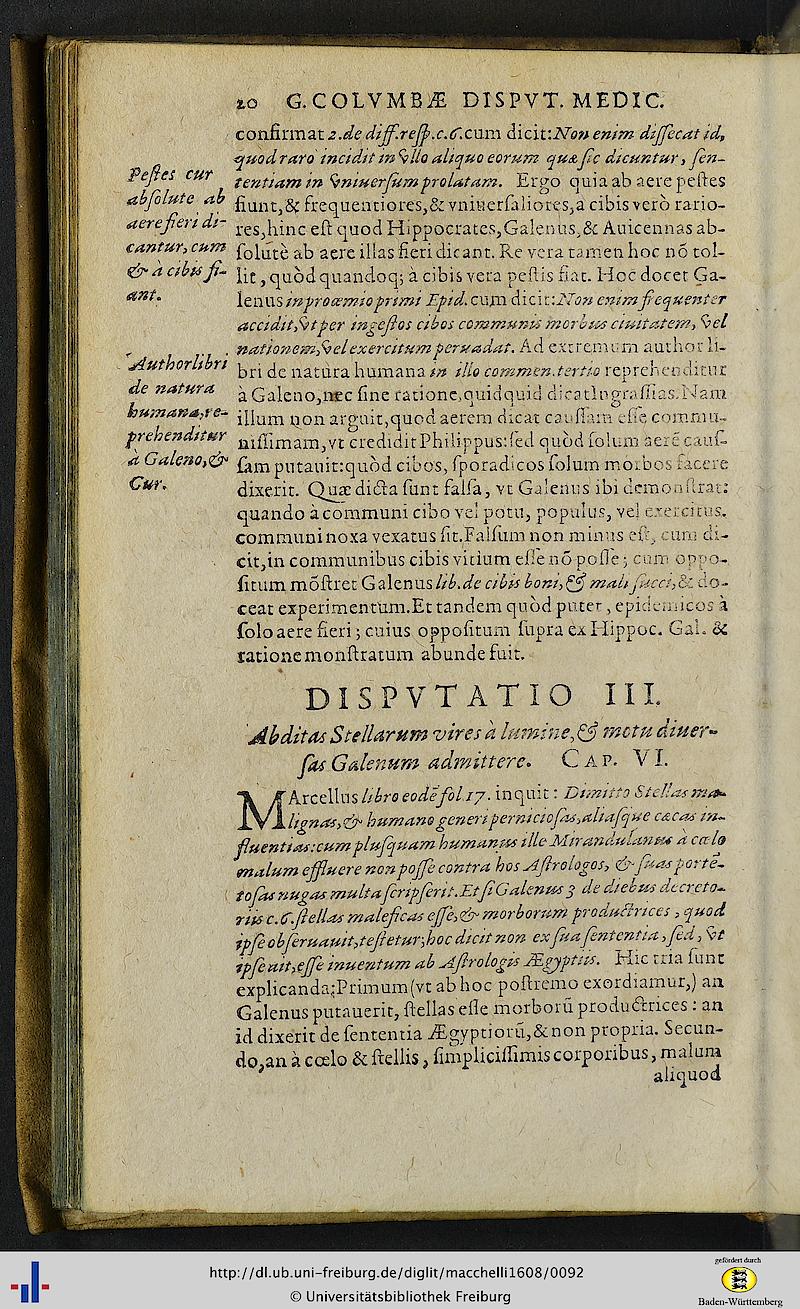 20 G. COLVMBÆ DISPVT. MEDIC.
confirmat 2. de diff. resp. c. 6. cum dicit: Non enim dissecat id,
quod raro incidit in vllo aliquo eorum quæ sic dicuntur, sen-
tentiam in vniuersum prolatam. Ergo quia ab aere pestes
fiunt, & frequentiores, & vniuersaliores, a cibis verò rario-
res, hinc est quod Hippocrates, Galenus, & Auicennas ab-
solutè ab aere illas fieri dicant. Re vera tamen hoc nō tol-
lit, quòd quandoq; à cibis vera pestis fiat. Hoc docet Ga-
lenus in proœmio primi Epid. cum dicit: Non enim frequenter
accidit, vt per ingestos cibos communis morbus ciuitatem, vel
nationem, vel exercitum peruadat. Ad extremum author li-
bri de natura humana in illo commen. tertio reprehenditur
à Galeno, nec sine ratione, quidquid dicat Ingrassias. Nam
illum non arguit, quod aerem dicat caussam esse commu-
nissimam, vt credidit Philippus: sed quòd solum aerē caus-
sam putauit: quòd cibos, sporadicos solum morbos facere
dixerit. Quæ dicta sunt falsa, vt Galenus ibi demonstrat:
quando à communi cibo vel potu, populus, vel exercitus,
communi noxa vexatus sit. Falsum non minus est, cum di-
cit, in communibus cibis vitium esse nō posse; cum oppo-
situm mōstret Galenus lib. de cibis boni, & mali succi, & do-
ceat experimentum. Et tandem quòd putet, epidemicos à
solo aere fieri; cuius oppositum supra ex Hippoc. Gal. &
ratione monstratum abunde fuit.
Pestes cur
absolute ab
aere fieri di-
cantur, cum
& à cibis fi-
ant.
Author libri
de natura
humana, re-
prehenditur
à Galeno, &
Cur.
DISPVTATIO III.
Abditas Stellarum vires à lumine, & motu diuer-
sas Galenum admittere. CAP. VI.
MArcellus libro eodē fol. 17. inquit: Dimitto Stellas ma-
lignas, & humano generi perniciosas, aliasque cæcas in-
fluentias: cum plusquam humanus ille Mirandulanus à cœlo
malum effluere non posse contra hos Astrologos, & suas portē-
tosas nugas multa scripserit. Et si Galenus 3 de diebus decreto-
riis c. 6. stellas maleficas esse, & morborum productrices, quod
ipse obseruauit, testetur; hoc dicit non ex sua sententia, sed, vt
ipse ait, esse inuentum ab Astrologis Ægyptiis. Hic tria sunt
explicanda; Primum (vt ab hoc postremo exordiamur,) an
Galenus putauerit, stellas esse morborū productrices: an
id dixerit de sententia Ægyptiorū, & non propria. Secun-
do, an à cœlo & stellis, simplicissimis corporibus, malum
aliquod
http://dl.ub.uni-freiburg.de/diglit/macchelli1608/0092
© Universitätsbibliothek Freiburg
gefördert durch
Baden-Württemberg